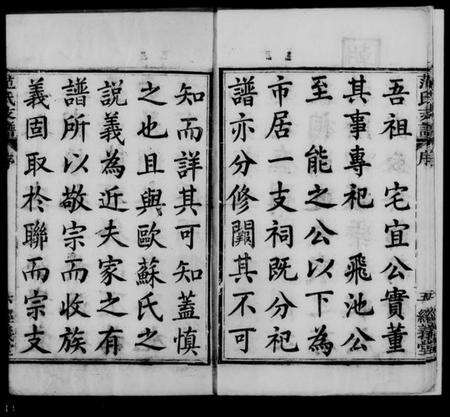 吾祖 宅宜公實董
其事專祀 飛池公
至 能之公以下為
市居一支祠既分祀
譜亦分修闕其不可
知而詳其可知蓋慎
之也且與歐蘇氏之
說義為近夫家之有
譜所以敬宗而收族
義固取於聯而宗支
范氏支譜
序
五
范氏支譜
序
六